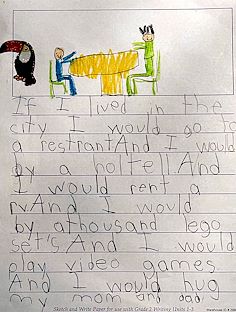 If I lived in the
city I would go to
a restrantAnd I would
by a holtellAnd
I would rent a
rvAnd I would
by athousand lego
set's And I would
play video games.
And I would hug
my mom and dad.
Sketch and Write Paper for use with Grade 2 Writing Units 1-3